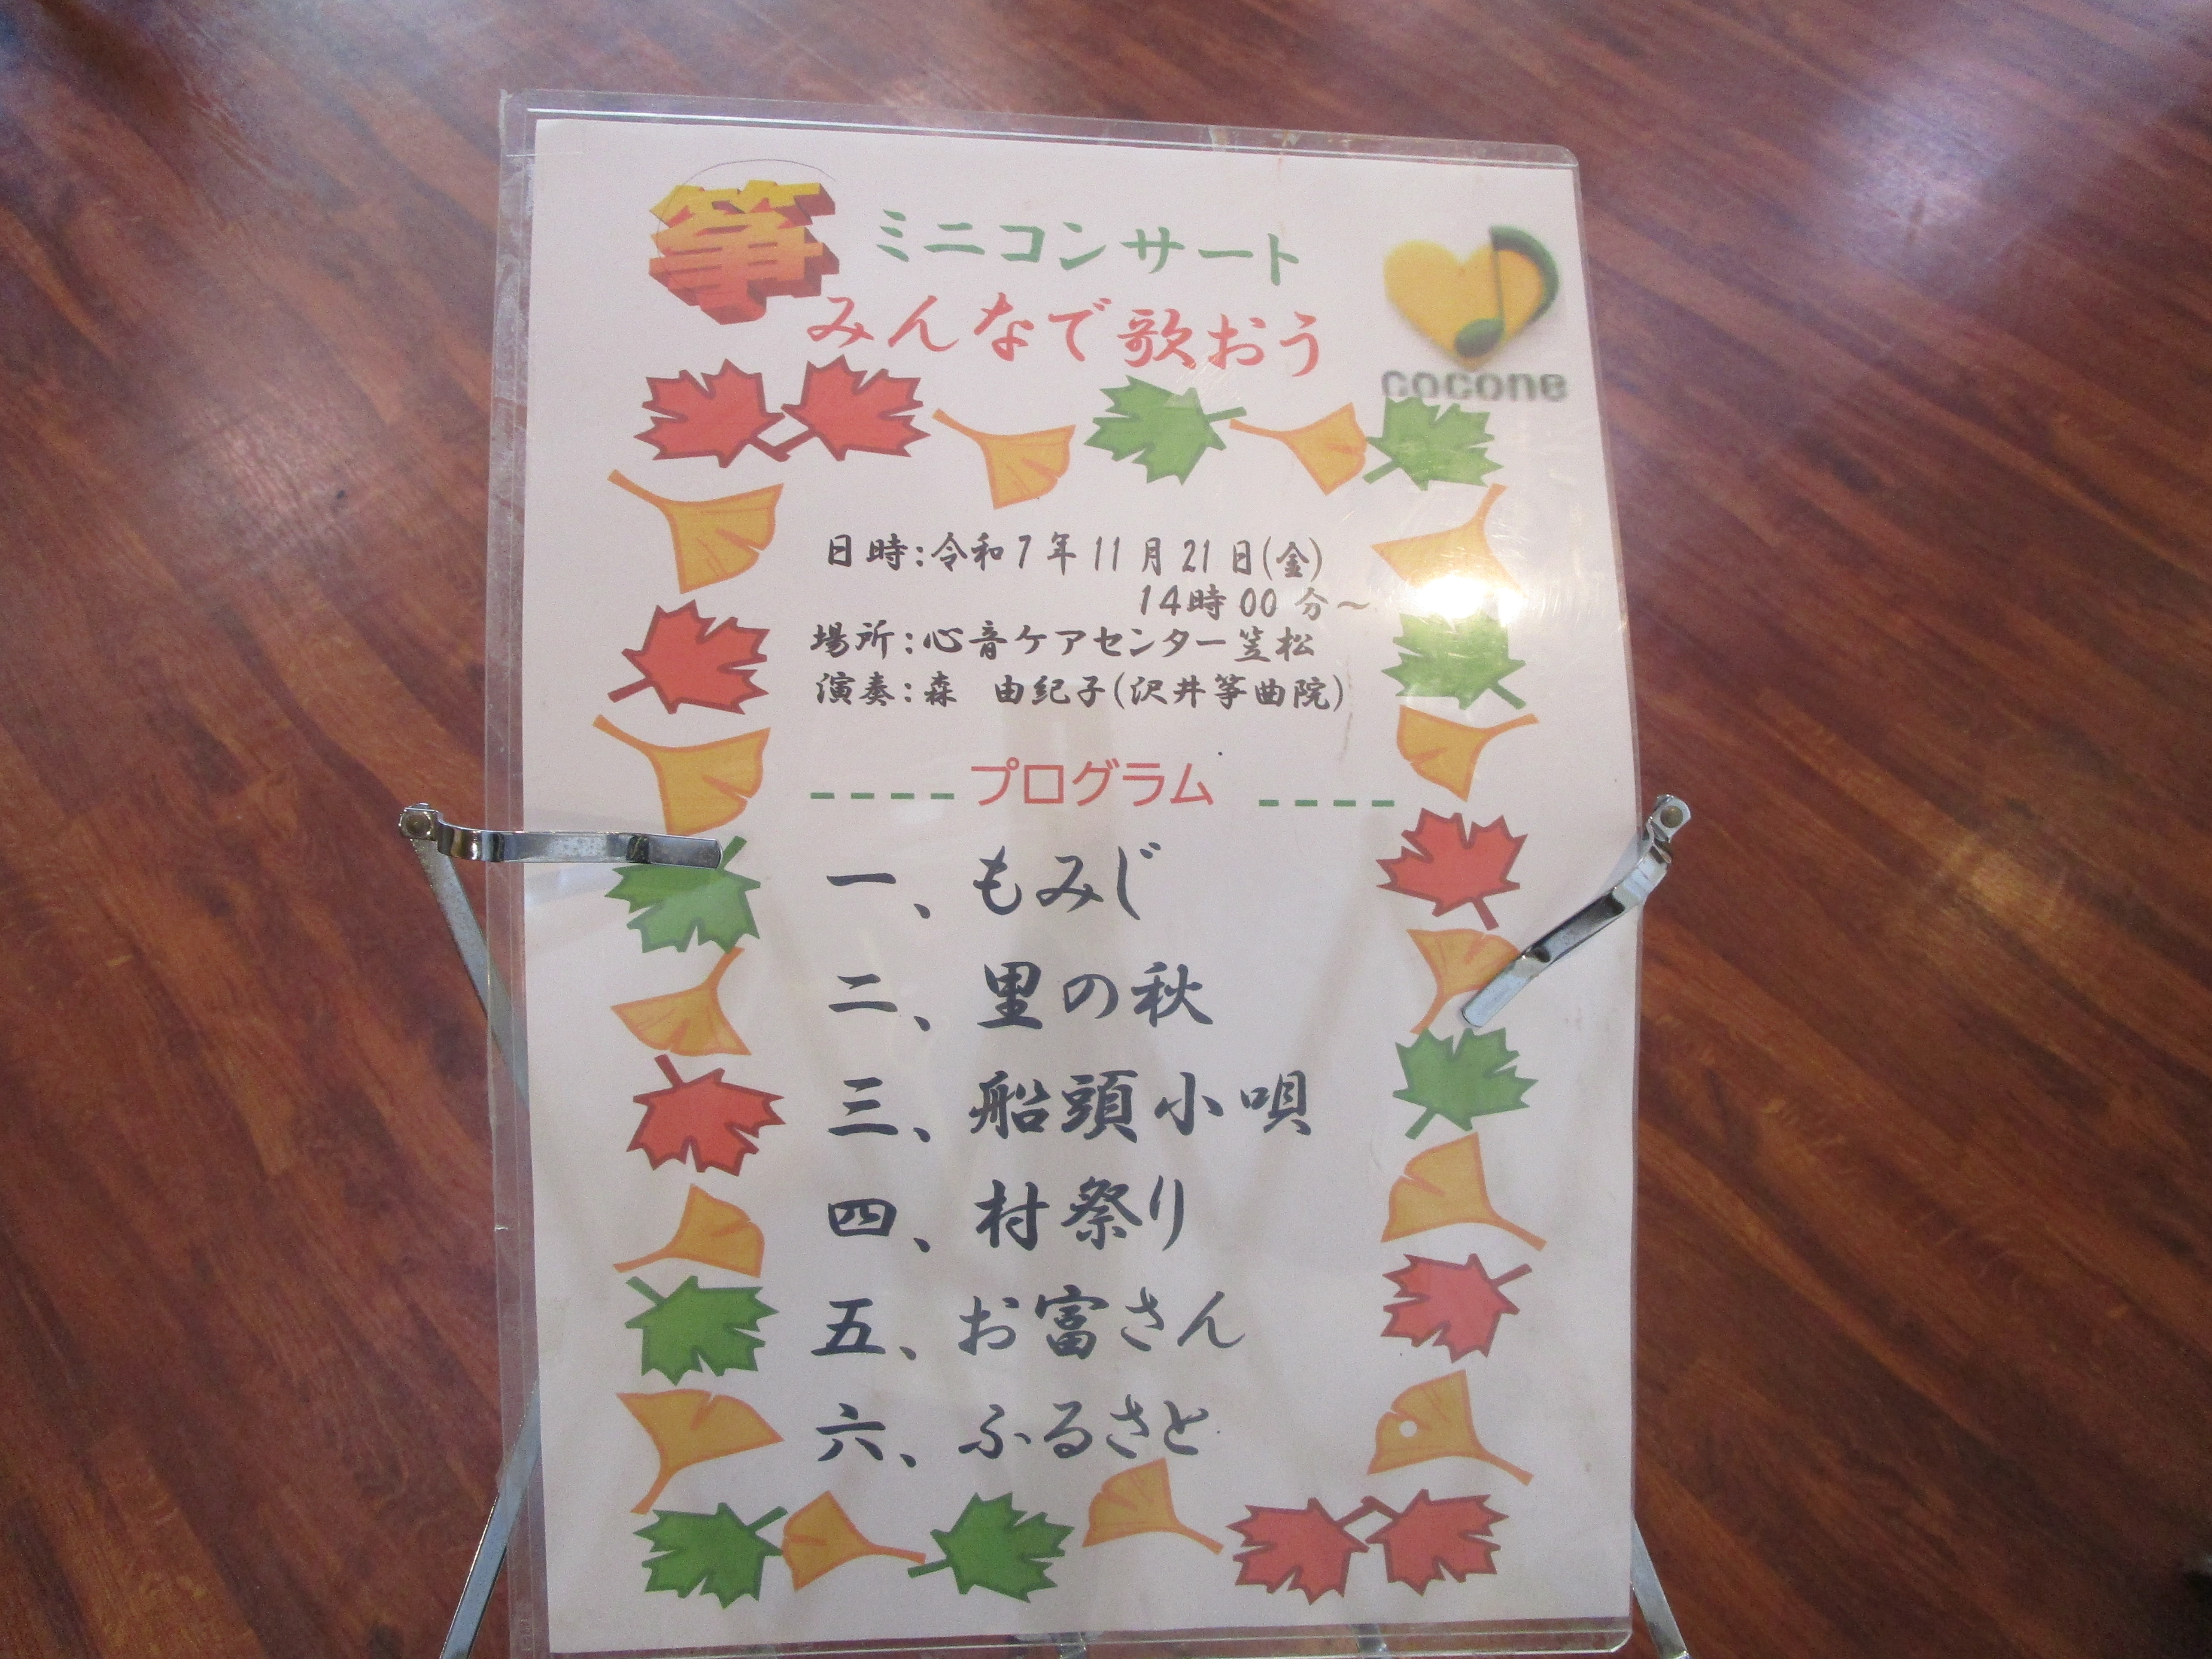 箏 ミニコンサート
みんなで歌おう
cocone
日時:令和7年11月21日(金)
14時00分～
場所:心音ケアセンター笠松
演奏:森　由紀子(沢井箏曲院)
----プログラム ----
一、もみじ
二、里の秋
三、船頭小唄
四、村祭り
五、お富さん
六、ふるさと